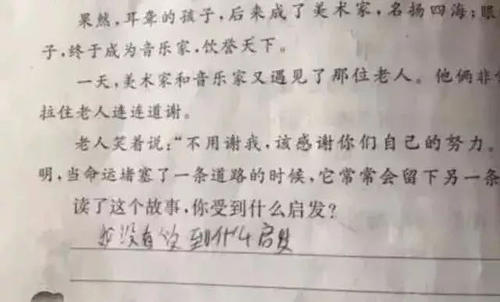 果然，耳聋的孩子，后来成了美术家，名扬四海；眼
子，终于成为音乐家，饮誉天下。
一天，美术家和音乐家又遇见了那位老人。他俩非
拉住老人连连道谢。
老人笑着说：“不用谢我，该感谢你们自己的努力。
明，当命运堵塞了一条道路的时候，它常常会留下另一条
读了这个故事，你受到什么启发？
我没有受到什么启发